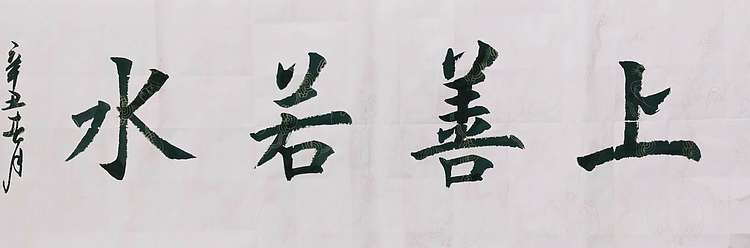 上善若水
辛丑春月